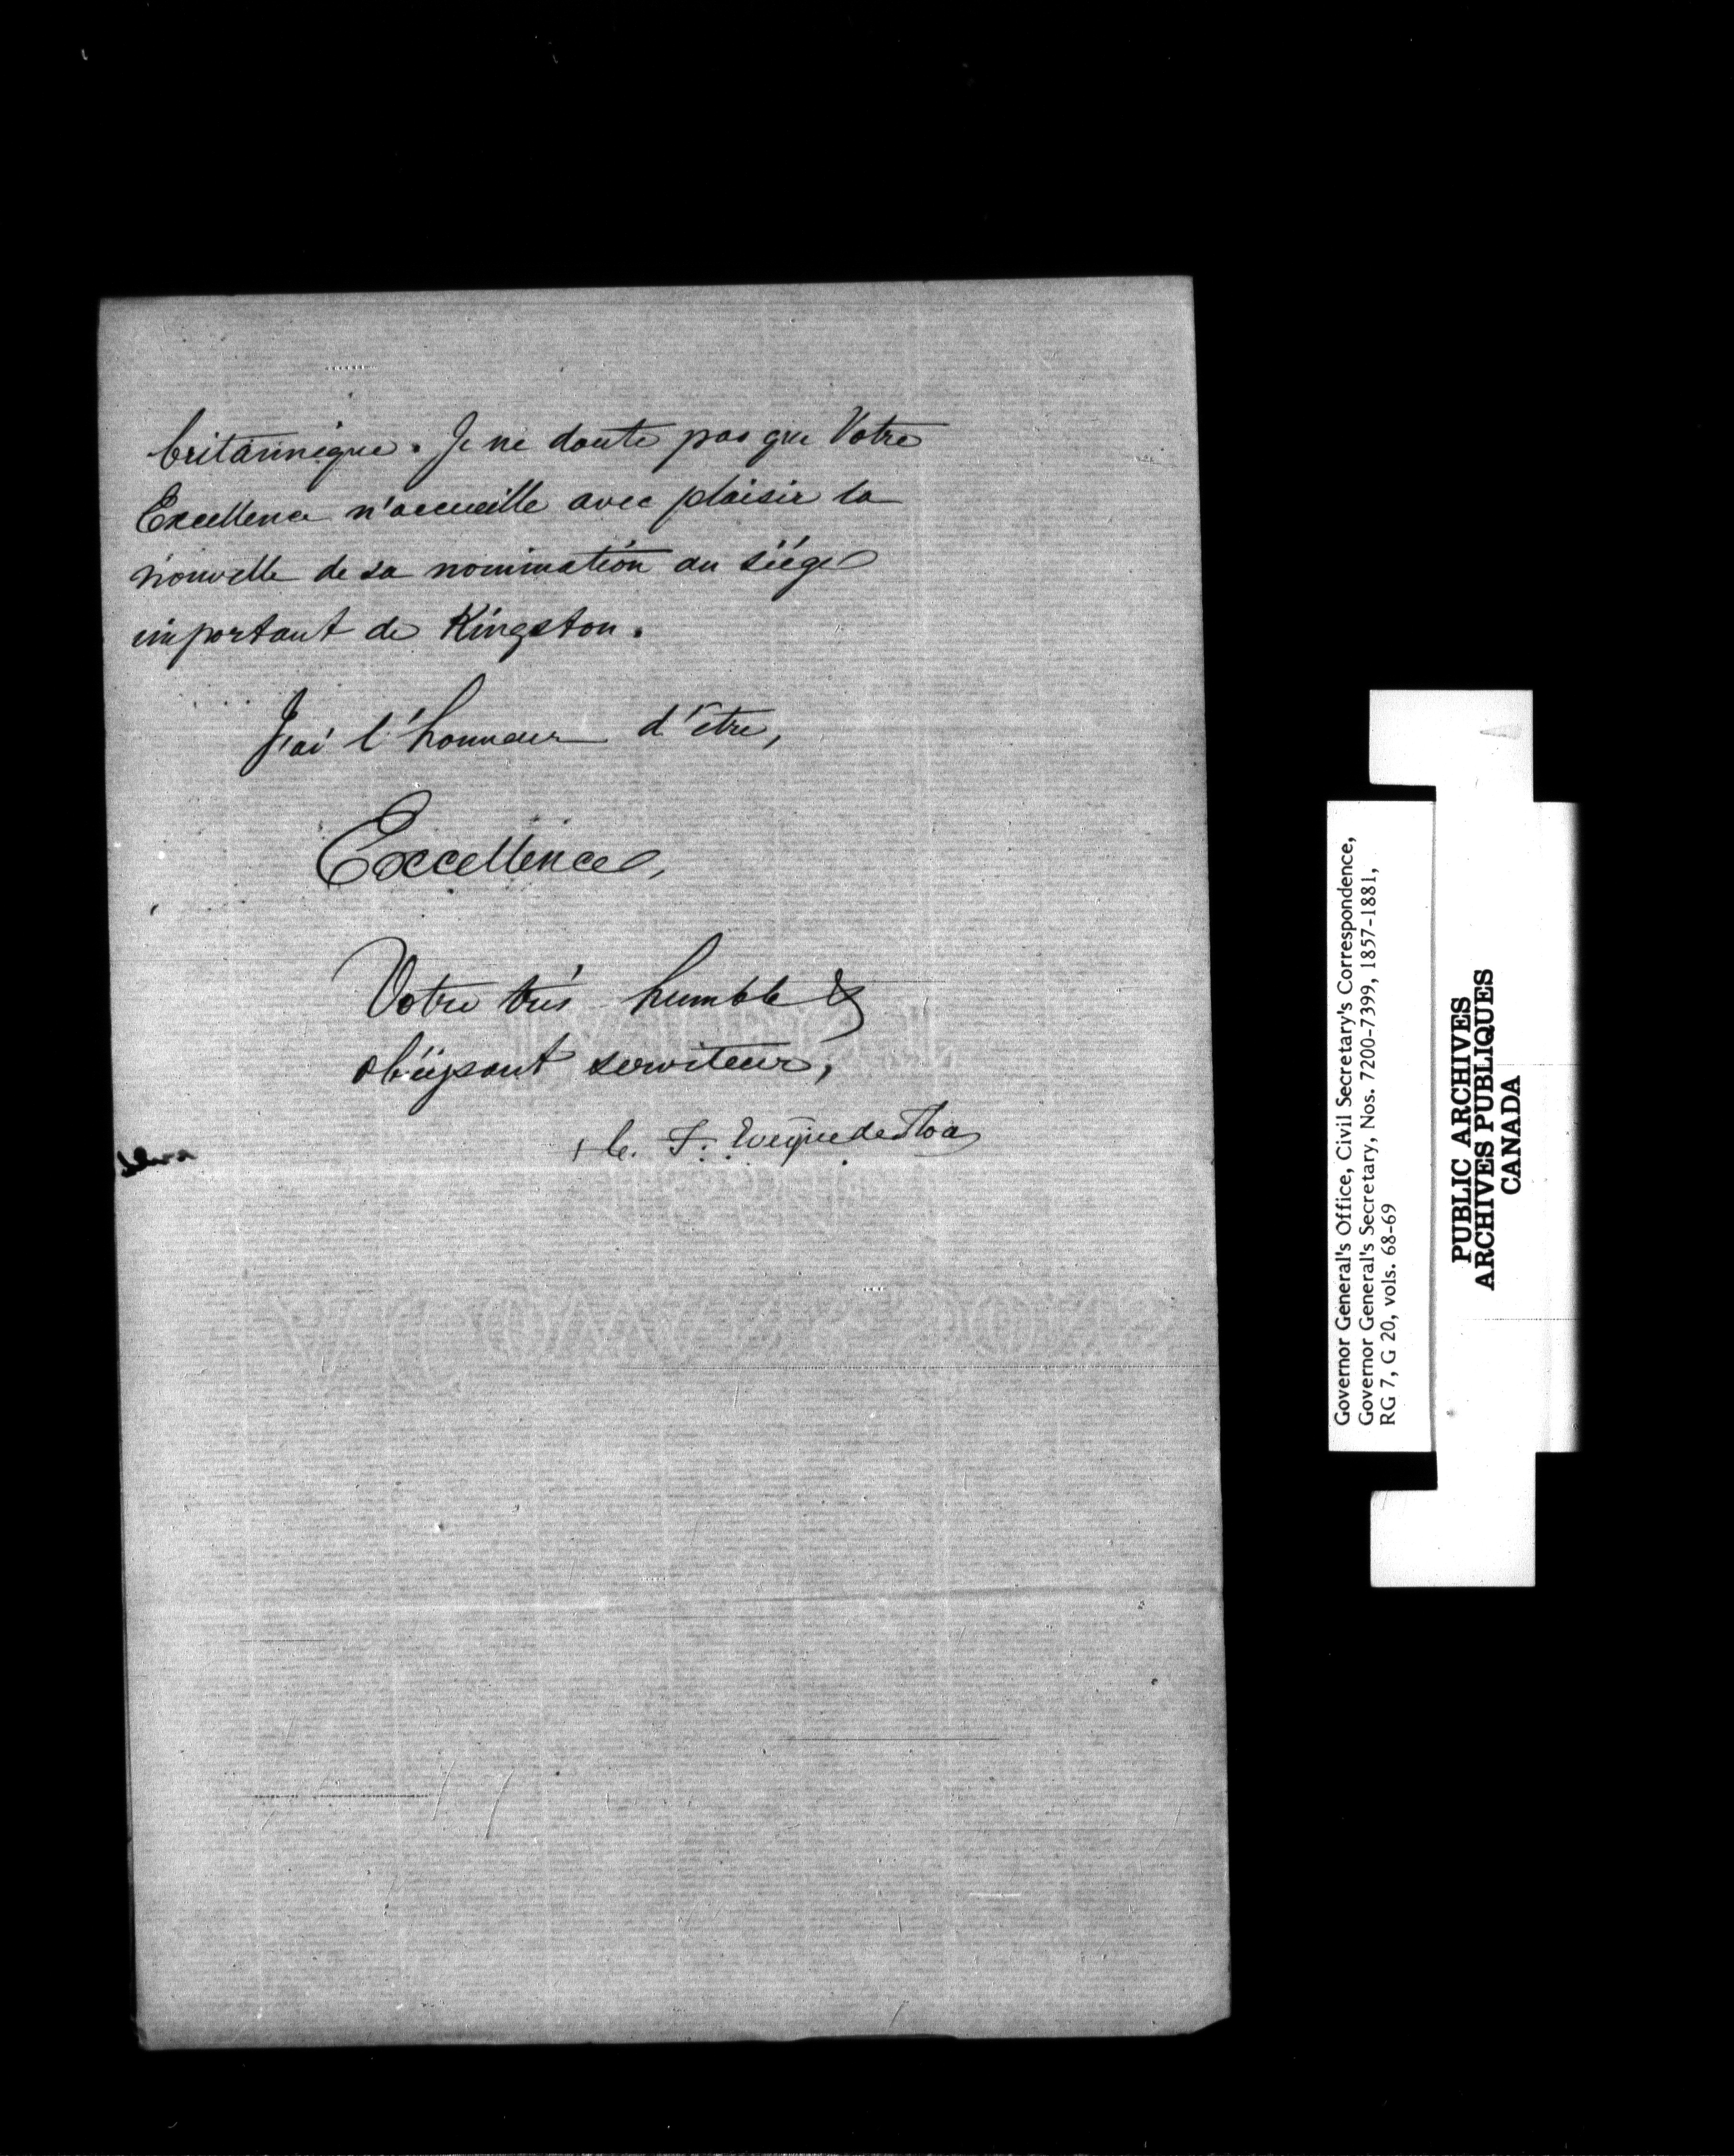 britannique. Je ne doute pas que Votre
Excellence n'accueille avec plaisir la
nouvelle de sa nomination au siége
important de Kingston.
J'ai l'honneur d'être,
Excellence,
Votre très humble &
obéissant serviteur,
+ C. F. Evêque de Tloa
Governor General's Office, Civil Secretary's Correspondence,
Governor General's Secretary, Nos. 7200-7399, 1857-1881,
RG 7, G 20, vols. 68-69
PUBLIC ARCHIVES
ARCHIVES PUBLIQUES
CANADA